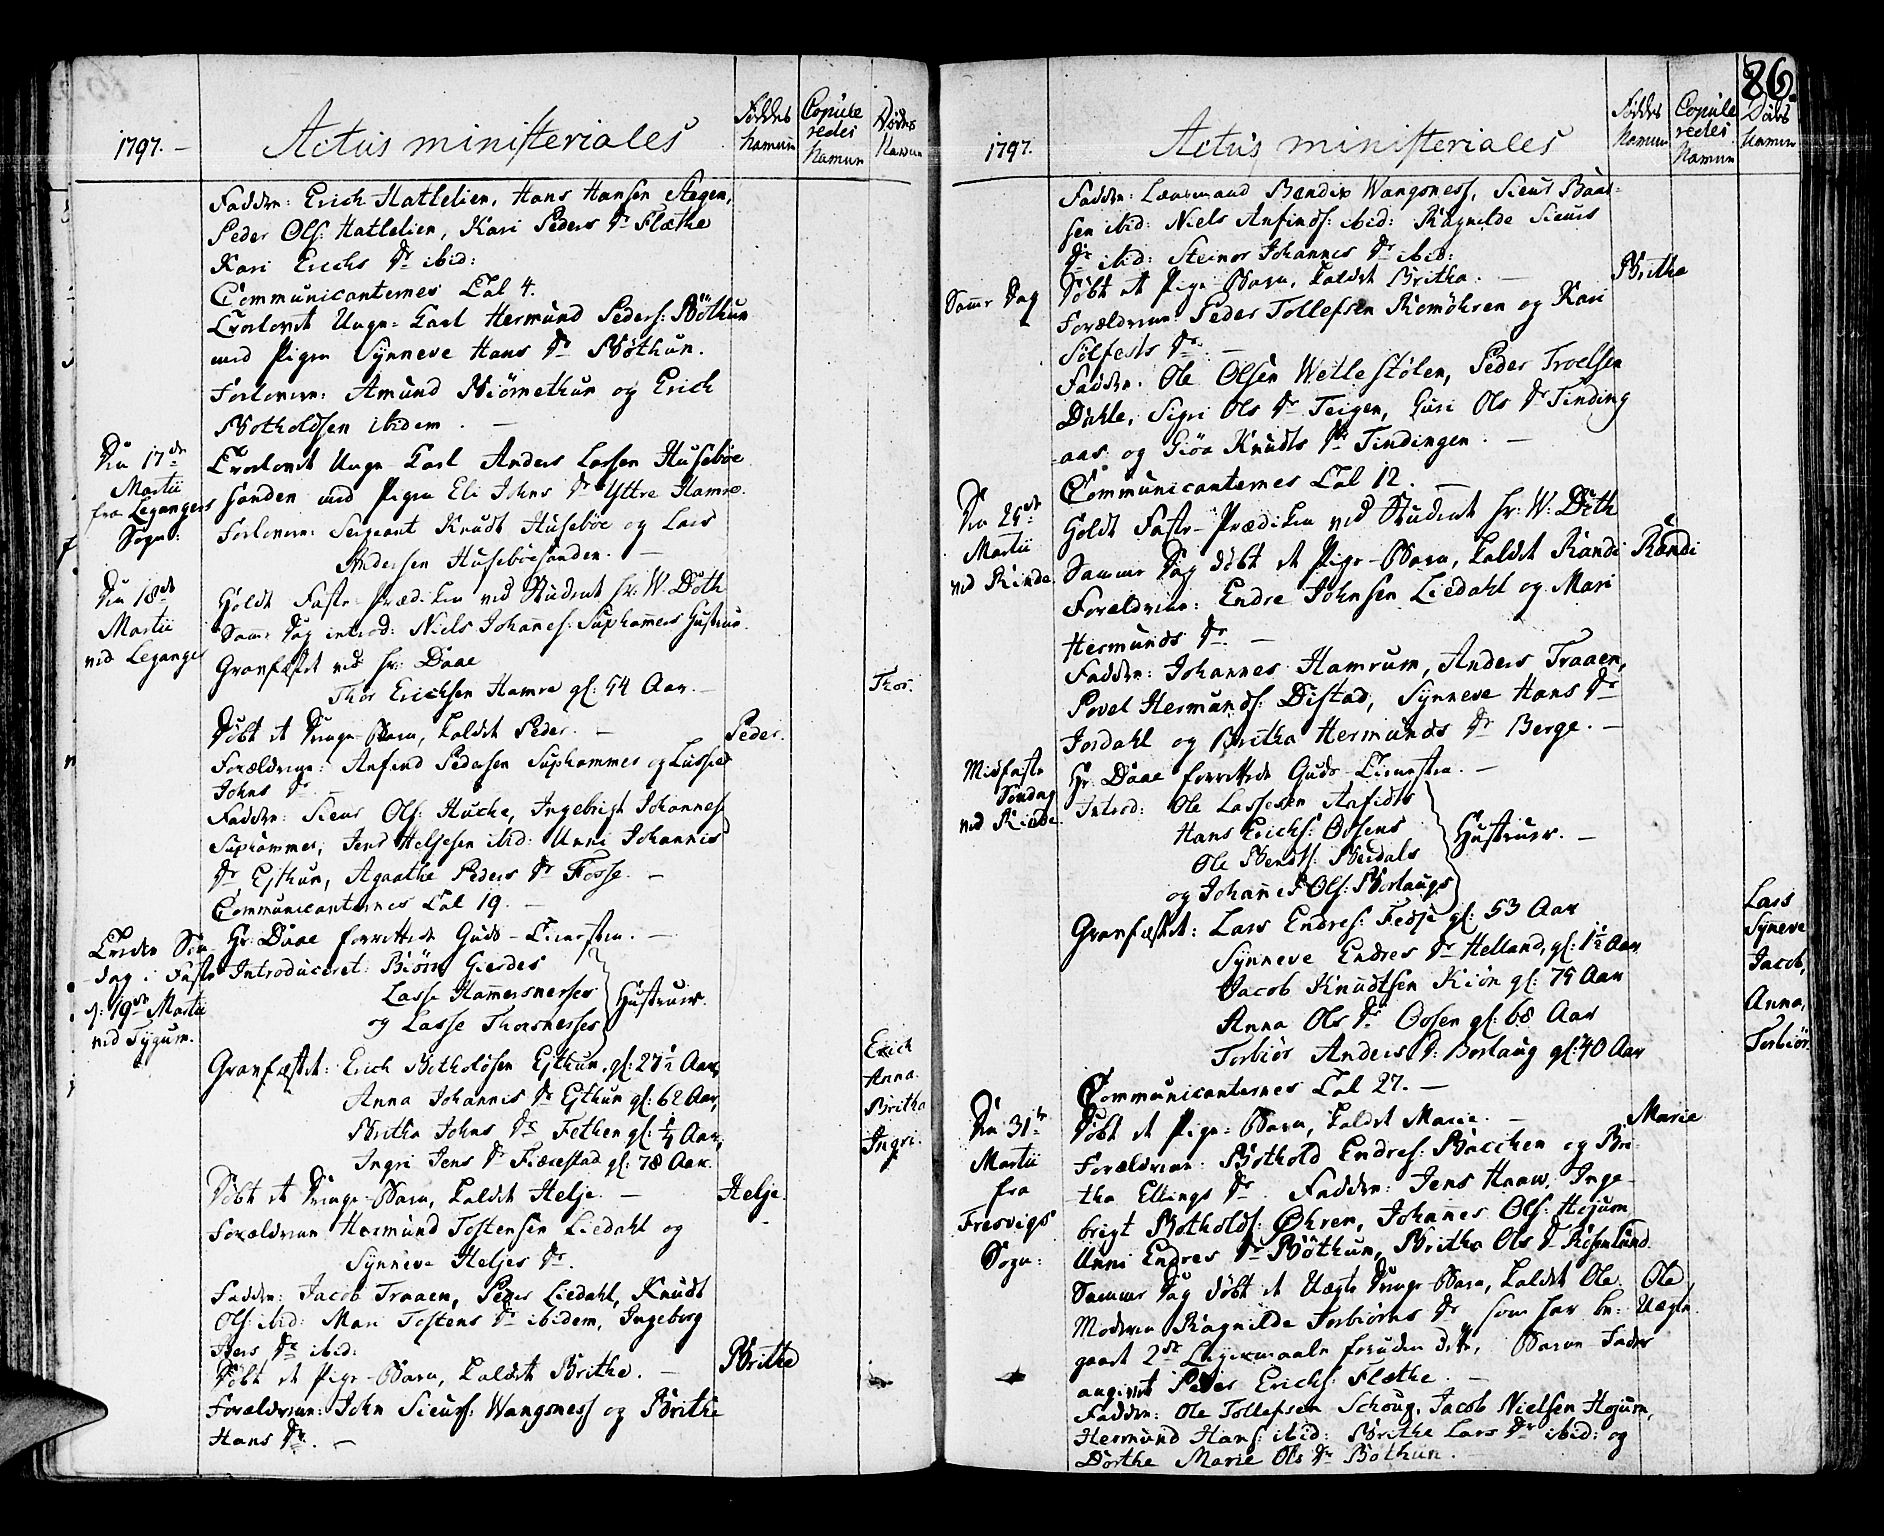 1797.
Actus ministeriales
Føddes Namun
Copule redes Namun
Dødes Namun
Faddr: Erich Hattelien, Hans Hansen Stegen,
Peder Ols: Hattelien, Kari Peders Dr Flæthe
Kari Erichs Dr ibid:
Communicanternes Tal 4.
Troelovet Unge-Karl Hermund Peders: Bøthun
med Pigen Synneve Hans Dr Bøthun.
Forlovere: Amund Niørnethun og Erich
Botholdsen ibidem. —
Den 17de
Martii
fra Leganger
Sogn:
Troelovet Unge-Karl Anders Lassen Husebøe
sanden med Pigen Eli Johns Dr Yttre Hamre.
Forlovere: Sergeant Knudt Husebøe og Lars
Andersen Husebøesanden. —
Den 18de
Martii
ved Leganger
Holdt Faste-Prædiken ved Student Hr: W: Döth
Samme Dag introd: Niels Johannes: Suphamers Hustrue.
Gravfæstet ved Hr: Daae
Thor Erichsen Hamre gl: 54 Aar. —
Thor.
Døbt et Drenge-Barn, kaldet Peder. —
Peder.
Forældrene: Anfind Pedersen Suphammer og Lussie
Johns Dr —
Faddr: Siour Ols: Hucke, Ingebrigt Johannes:
Suphammer, Jens Heljesen ibid: Unni Johannis
Dr Esthun, Agathe Peders Dr Fosse. —
Communicanternes Tal 19. —
Tredie Søn
dag i Faste
d: 19de Martii
ved Tygum.
Hr: Daae forrettede Guds-Tienesten. —
Introduceret: Biørn Gierdes
Lasse Hamersnesses
og Lasse Thorsnesses
Hustruer.
Gravfæstet: Erich Botholdsen Esthun, gl: 27½ Aar,
Anna Johannis Dr Esthun gl: 62 Aar,
Britha Johns Dr Fethen gl: ¼ Aar,
Ingri Jens Dr Fierestad gl: 78 Aar.
Erich
Anna.
Britha
Ingri.
Døbt et Drenge-Barn, kaldet Helje. —
Helje.
Forældrene Hermund Tostensen Liedahl og
Synneve Heljes Dr.
Faddr: Jacob Traaen, Peder Liedahl, Knudt
Ols: ibid: Mari Tostens Dr ibidem, Ingeborg
Iers Dr ibid:
Døbt et Pige-Barn, kaldet Brithe. —
Brithe
Forældrene: John Siours: Wangsness og Brithe
Hans Dr. —
86.
1797.
Actus ministeriales
Føddes Namun
Copule redes Namun
Dødes Namun
Faddr: Lænsmand Bendix Wangsness, Siour Baar-
sen ibid: Niels Anfinds: ibid: Ragnilde Siours
Dr ibid: Steinor Johannis Dr ibid:
Samme Dag
Døbt et Pige Barn, kaldet Britha. —
Britha
Forældrene: Peder Tollefsen Romøhren og Kari
Sølfests Dr. —
Faddr: Ole Olsen Wetlestølen, Peder Troelsen
Dahle, Sigri Ols Dr Teigen, Guri Ols Dr Tinding
aas og Giøa Knudts Dr Tindingen. —
Communicanternes Tal 12. —
Den 25de
Martii
ved Rinde
Holdt Faste-Prædiken ved Student Hr: W: Döth
Samme Dag døbt et Pige-Barn, kaldet Randi
Randi
Forældrene: Endre Johnsen Liedahl og Mari
Hermunds Dr. —
Faddr: Johannes Hamrum, Anders Traaen,
Povel Hermunds: Distad, Synneve Hans Dr
Jordahl og Britha Hermunds Dr Berge. —
Midfaste
Søndag
ved Rinde
Hr: Daae forrettede Guds-Tienesten. —
Introd: Ole Lassesen Anfidts
Hans Erichs: Ovsens
Ole Bendts: Beidals
og Johannes Ols: Borlaugs
Hustruer. —
Gravfæstet: Lars Endres: Fedje gl: 53 Aar
Synneve Endres Dr Helland, gl: 1½ Aar
Jacob Knudtsen Kiøn gl: 75 Aar
Anna Ols Dr Ovsen gl: 68 Aar
Torbiør Anders D: Borlaug gl: 40 Aar
Lars
Syneve
Jacob,
Anna,
Torbiør.
Communicanternes Tal 27. —
Den 31te
Martii
fra
Fresvigs
Sogn:
Døbt et Pige-Barn, kaldet Marie. —
Marie
Forældrene: Bothold Endres: Bacchen og Bri-
tha Ellings Dr. Faddr: Jens Haaw, Inge-
brigt Botholds: Øhren, Johannes Ols: Hojum
Unni Endres Dr Bøthun, Britha Ols Dr Rosenlund.
Samme Dag døbt et Uægte Drenge-Barn, kaldet Ole
Ole
Uægte.
Moderen Ragnilde Torbiørns Dr som har be-
gaaet 2de Leyermaale foruden dette, Barne Fader
angivet Peder Erichs: Flæthe. —
Faddr: Ole Tollefsen Schoug, Jacob Nielsen Hojum,
Hermund Hans: ibid: Brithe Lars Dr ibid: og
Dorthe Marie Ols Dr Bøthun. —